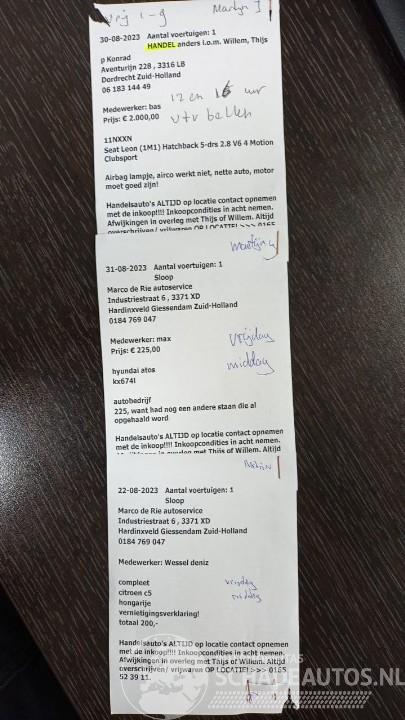 Vrij 1-9 Martijn
30-08-2023 Aantal voertuigen: 1
HANDEL anders i.o.m. Willem, Thijs
p Konrad
Aventurijn 228 , 3316 LB
Dordrecht Zuid-Holland
06 183 144 49
12 en uur
Medewerker: bas
Prijs: € 2.000,00
bellen
11NXXN
Seat Leon (1M1) Hatchback 5-drs 2.8 V6 4 Motion
Clubsport
Airbag lampje, airco werkt niet, nette auto, motor
moet goed zijn!
Handelsauto's ALTIJD op locatie contact opnemen
met de inkoop!!!! Inkoopcondities in acht nemen.
Afwijkingen in overleg met Thijs of Willem. Altijd
overschrijven/ vrijwaren OP LOCATIE! >>> 0165
Martijn
31-08-2023 Aantal voertuigen: 1
Sloop
Marco de Rie autoservice
Industriestraat 6 , 3371 XD
Hardinxveld Giessendam Zuid-Holland
0184 769 047
Medewerker: max
Prijs: € 225,00
vrijdag
middag
hyundai atos
kx674l
autobedrijf
225, want had nog een andere staan die al
opgehaald word
Handelsauto's ALTIJD op locatie contact opnemen
met de inkoop!!!! Inkoopcondities in acht nemen.
Afwijkingen in overleg met Thijs of Willem. Altijd
22-08-2023 Aantal voertuigen: 1
Sloop
Marco de Rie autoservice
Industriestraat 6 , 3371 XD
Hardinxveld Giessendam Zuid-Holland
0184 769 047
Medewerker: Wessel deniz
compleet
citroen c5
hongarije
vernietigingsverklaring!
totaal 200,-
vrijdag
middag
Handelsauto's ALTIJD op locatie contact opnemen
met de inkoop!!!! Inkoopcondities in acht nemen.
Afwijkingen in overleg met Thijs of Willem. Altijd
overschrijven / vrijwaren OP LOCATIE! >>> 0165
52 39 11.
SCHADEAUTOS.NL